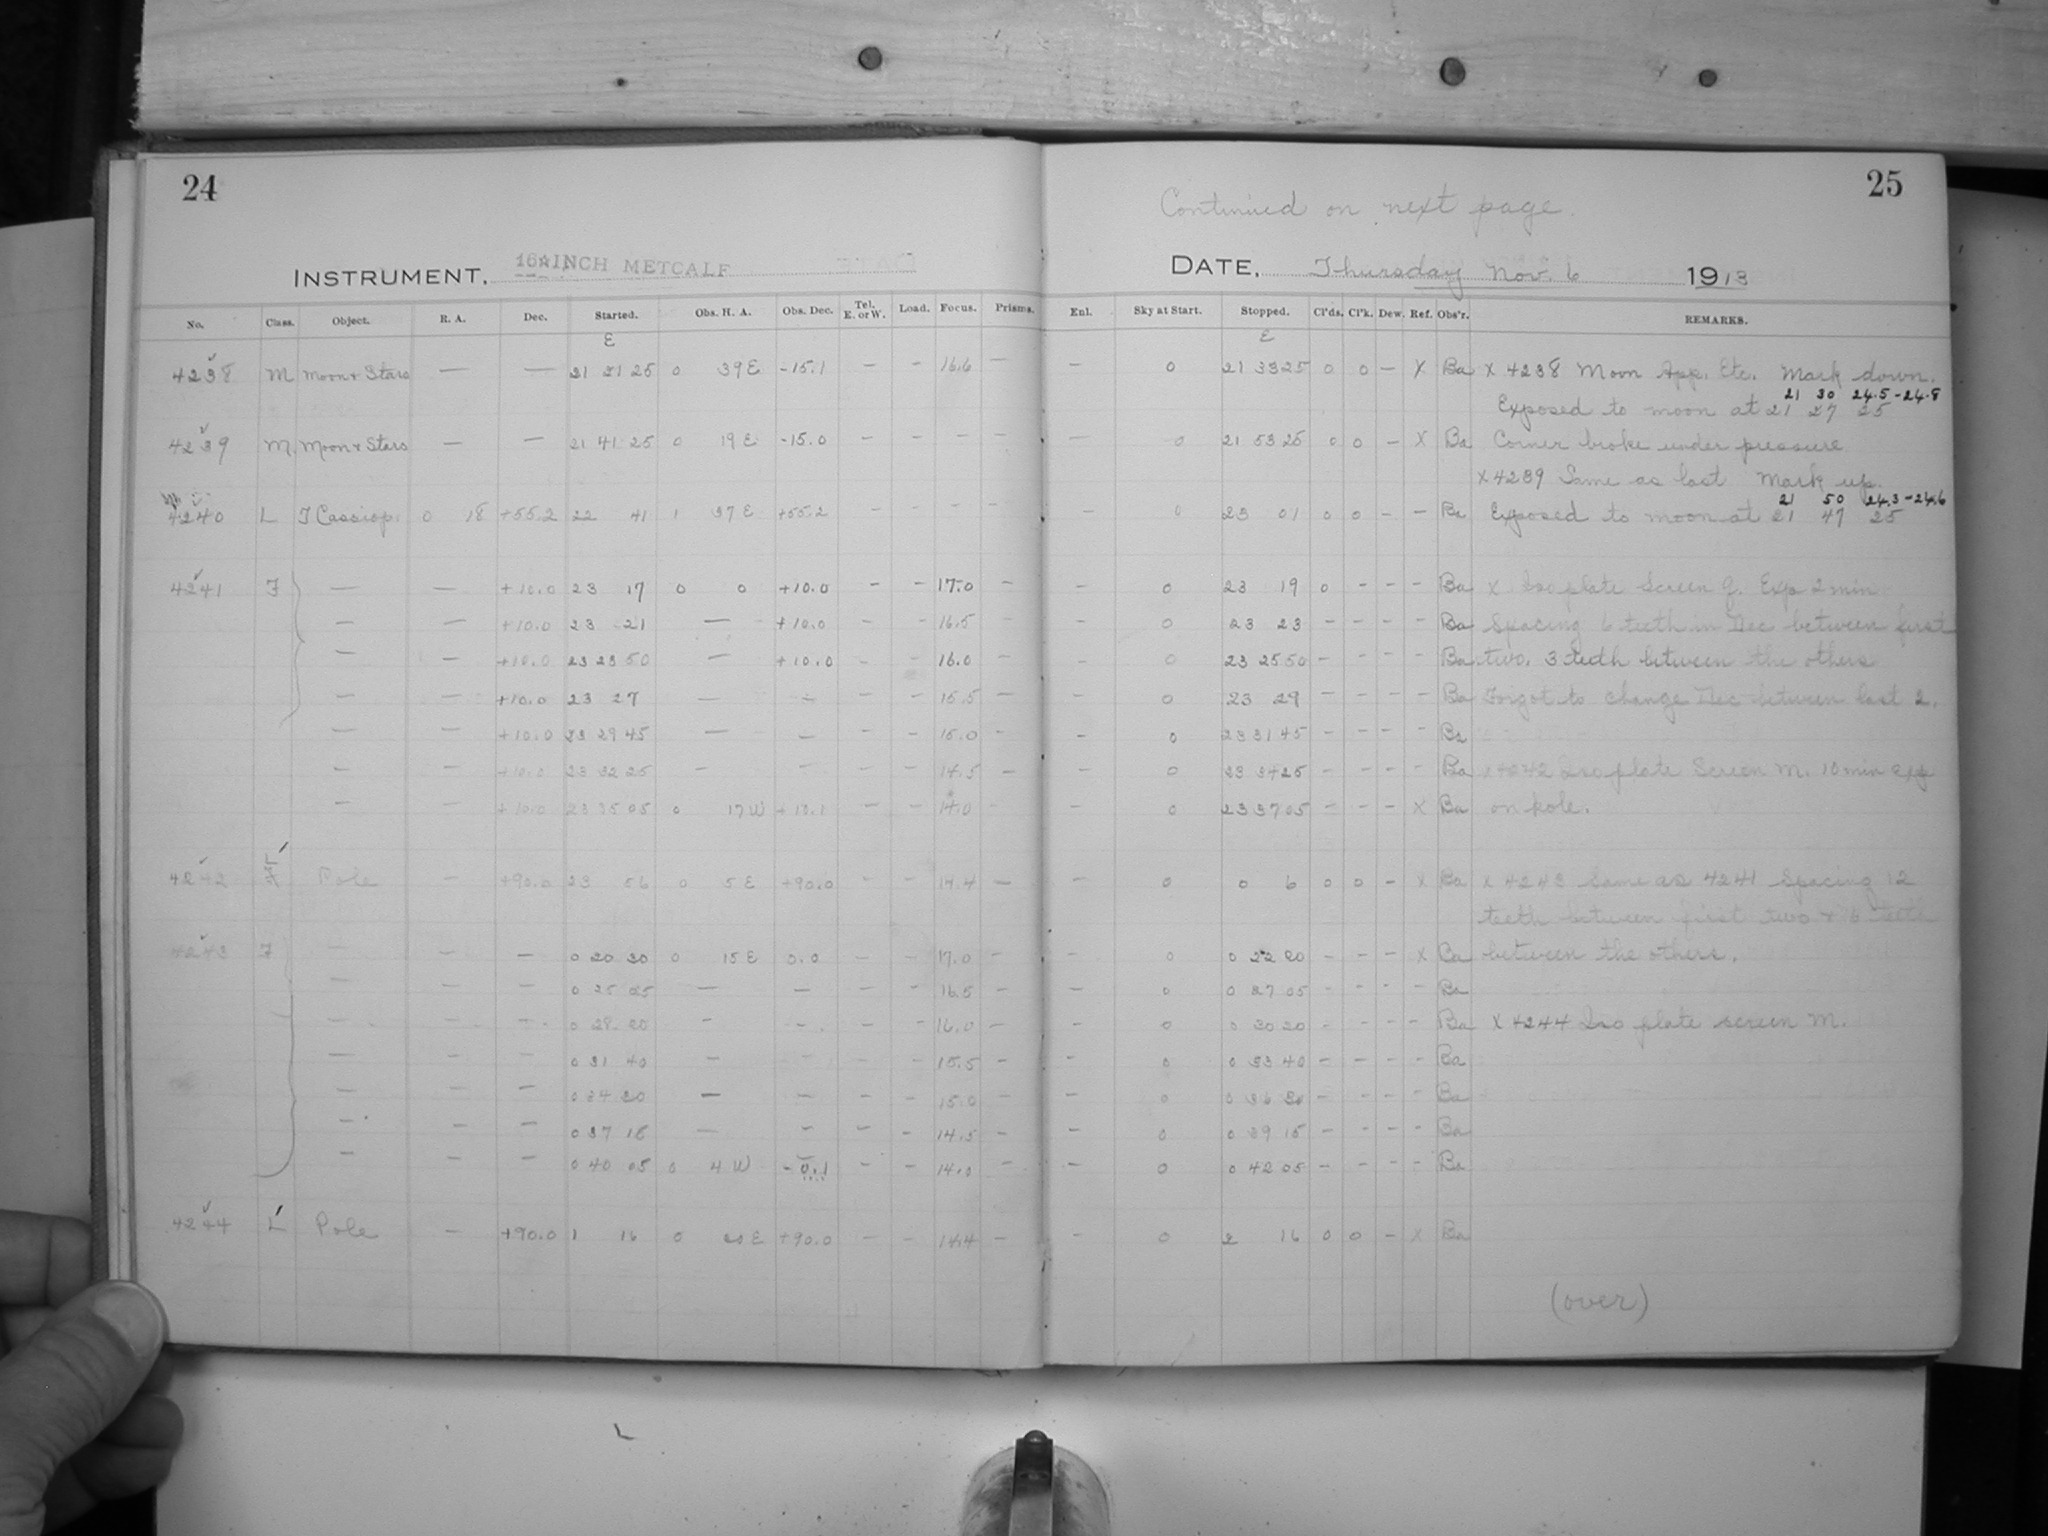 24
25
Continued on next page.
INSTRUMENT. 16 INCH METCALF
DATE. Thursday Nov. 6 1913
No. Class. Object. R. A. Dec. Started. Obs. H. A. Obs. Dec. Tel. E. or W. Load. Focus. Prisms. Enl. Sky at Start. Stopped. Cl'ds. Cl'k. Dew. Ref. Obs'r. REMARKS.
E E
4238 M Moon & Stars — — 21 21 25 0 39 E -15.1 — — 16.6 — — 0 21 33 25 0 0 — X Ba X 4238 Moon App. Etc. Mark down.
21 30 24.5-24.8
Exposed to moon at 21 27 25
4239 M. Moon & Stars — — 21 41 25 0 19 E -15.0 — — — — — 0 21 53 25 0 0 — X Ba Corner broke under pressure
X 4239 Same as last Mark up.
21 50 24.3-24.6
4240 L T Cassiop. 0 18 +55.2 22 41 1 37 E +55.2 — — — — — 0 23 01 0 0 — — Ba Exposed to moon at 21 47 25
4241 F — — +10.0 23 17 0 0 +10.0 — — 17.0 — — 0 23 19 0 — — — Ba X Iso plate Screen Exp 2 min
— — +10.0 23 21 — +10.0 — — 16.5 — — 0 23 23 — — — — Ba Spacing 6 teeth in Dec between first
— — +10.0 23 23 50 — +10.0 — — 16.0 — — 0 23 25 50 — — — — Ba two. 3 teeth between the others
— — +10.0 23 27 — — — — 15.5 — — 0 23 29 — — — — Ba Forgot to change Dec between last 2.
— — +10.0 23 29 45 — — — — 15.0 — — 0 23 31 45 — — — — Ba
— — +10.0 23 32 25 — — — — 14.5 — — 0 23 34 25 — — — — Ba X 4242 Iso plate Screen M. 10 min exp
— — +10.0 23 35 05 0 17 W +10.1 — — 14.0 — — 0 23 37 05 — — — X Ba on pole.
4242 L F Pole — +90.0 23 56 0 5 E +90.0 — — 14.4 — — 0 0 6 0 0 — X Ba X 4243 Same as 4241 Spacing 12
teeth between first two & 6 teeth
4243 F — — — 0 20 30 0 15 E 0.0 — — 17.0 — — 0 0 22 20 — — — X Ca between the others.
— — — 0 25 05 — — — — 16.5 — — 0 0 27 05 — — — — Ba
— — — 0 28 20 — — — — 16.0 — — 0 0 30 20 — — — — Ba X 4244 Iso plate screen M.
— — — 0 31 40 — — — — 15.5 — — 0 0 33 40 — — — — Ba
— — — 0 34 30 — — — — 15.0 — — 0 0 36 30 — — — — Ba
— — — 0 37 15 — — — — 14.5 — — 0 0 39 15 — — — — Ba
— — — 0 40 05 0 4 W -0.1 — — 14.0 — — 0 0 42 05 — — — — Ba
4244 L Pole — +90.0 1 16 0 E +90.0 — — 14.4 — — 0 2 16 0 0 — X Ba
(over)